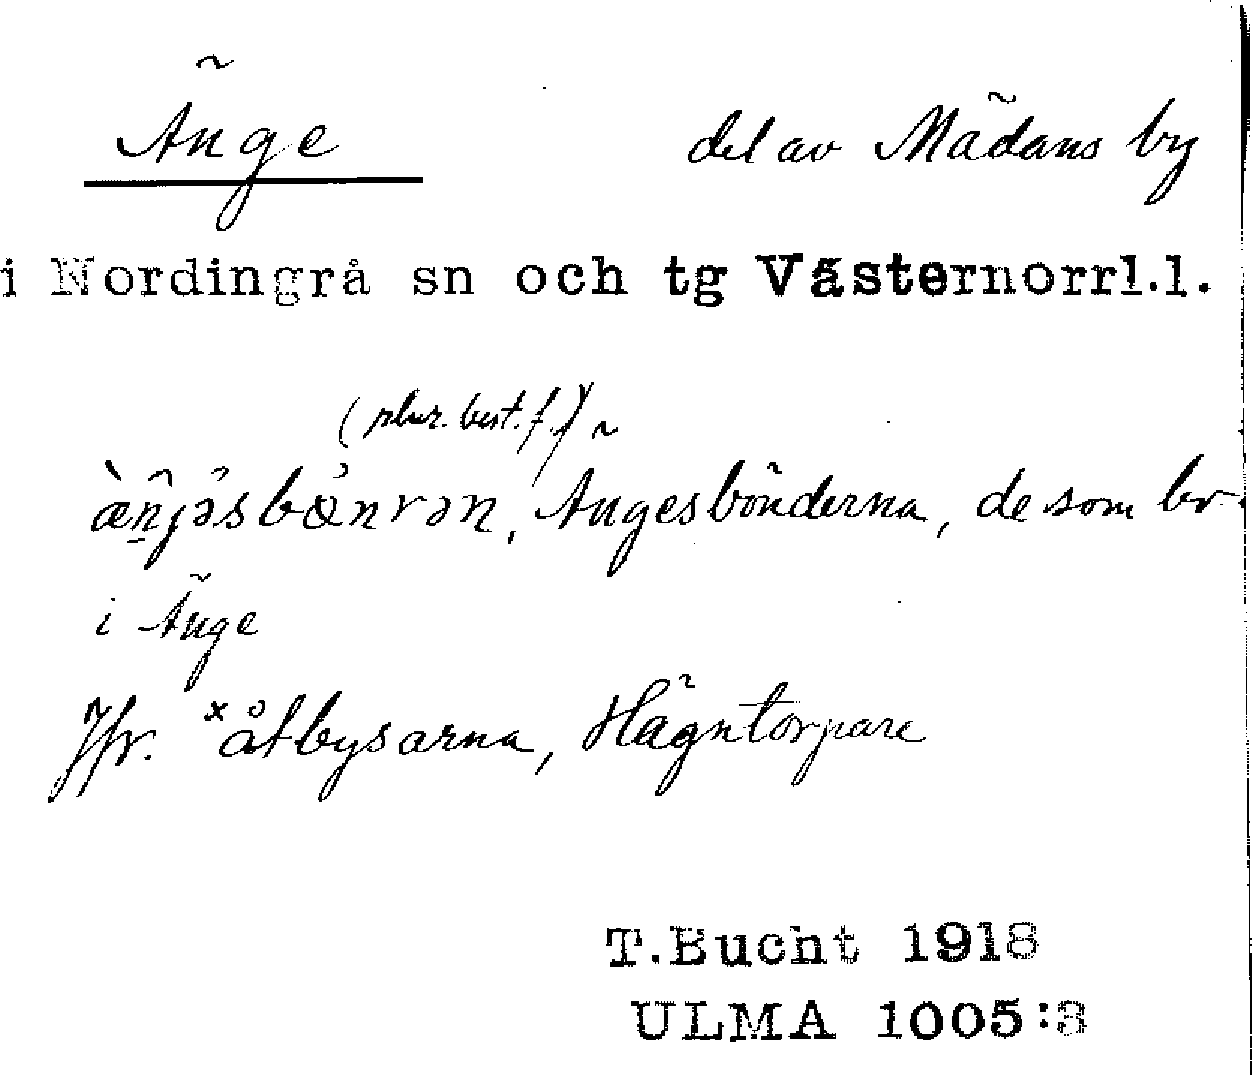 Änge del av Mädans by
i Nordingrå sn och tg Västernorrl.l.
(plur. best. f.)
æ̀n̂jəsbønrən, Ängesbönderna, de som bo
i Änge
Jfr. ˣåtbysarna, Hägntorpare
T.Bucht 1918
ULMA 1005:3